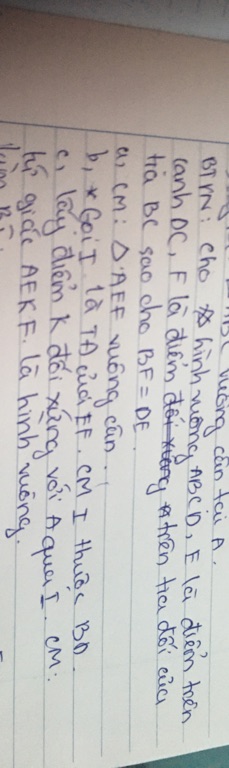 ABC vuông cân tại A.
BTVN: cho hình vuông ABCD, E là điểm trên
cạnh DC, F là điểm trên tia đối của
tia BC sao cho BF = DE.
a, CM: △AEF vuông cân.
b, * Gọi I là TĐ của EF. CM I thuộc BD.
c, lấy điểm K đối xứng với A qua I. CM:
tứ giác AEKF là hình vuông.